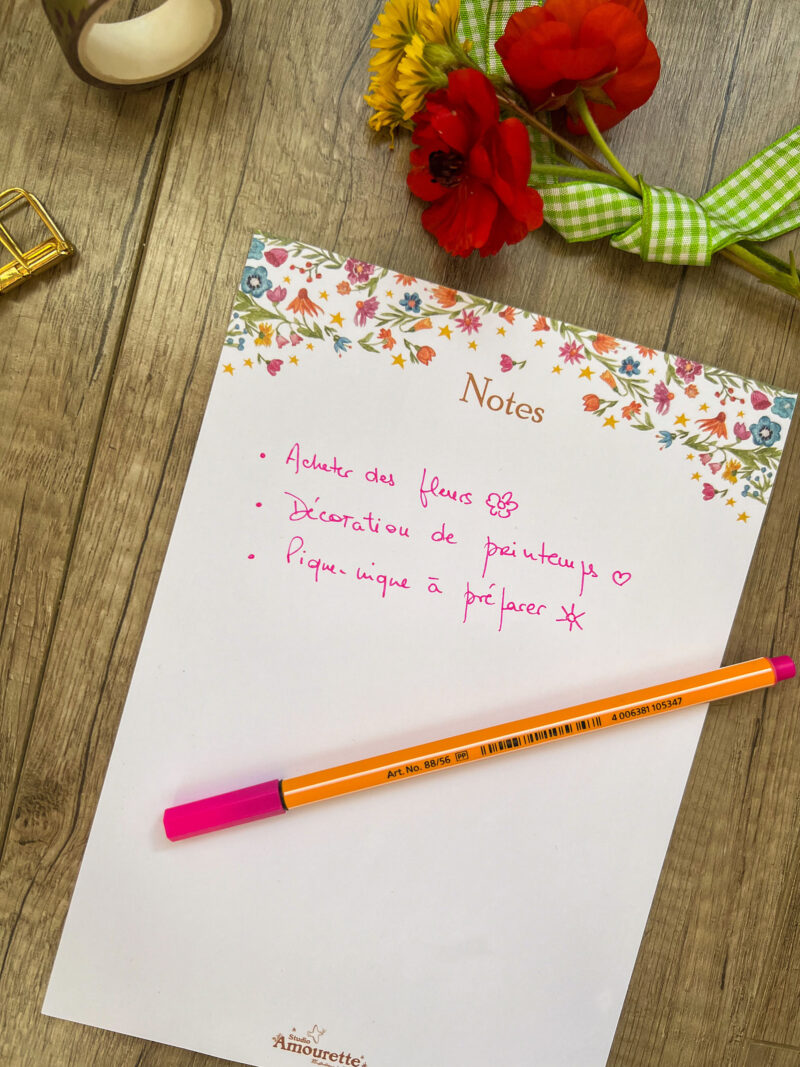 Notes
• Acheter des fleurs
• Décoration de printemps ♡
• Pique-nique à préparer
Art. No. 88/56 PP 4 006381 105347
Studio
Amourette